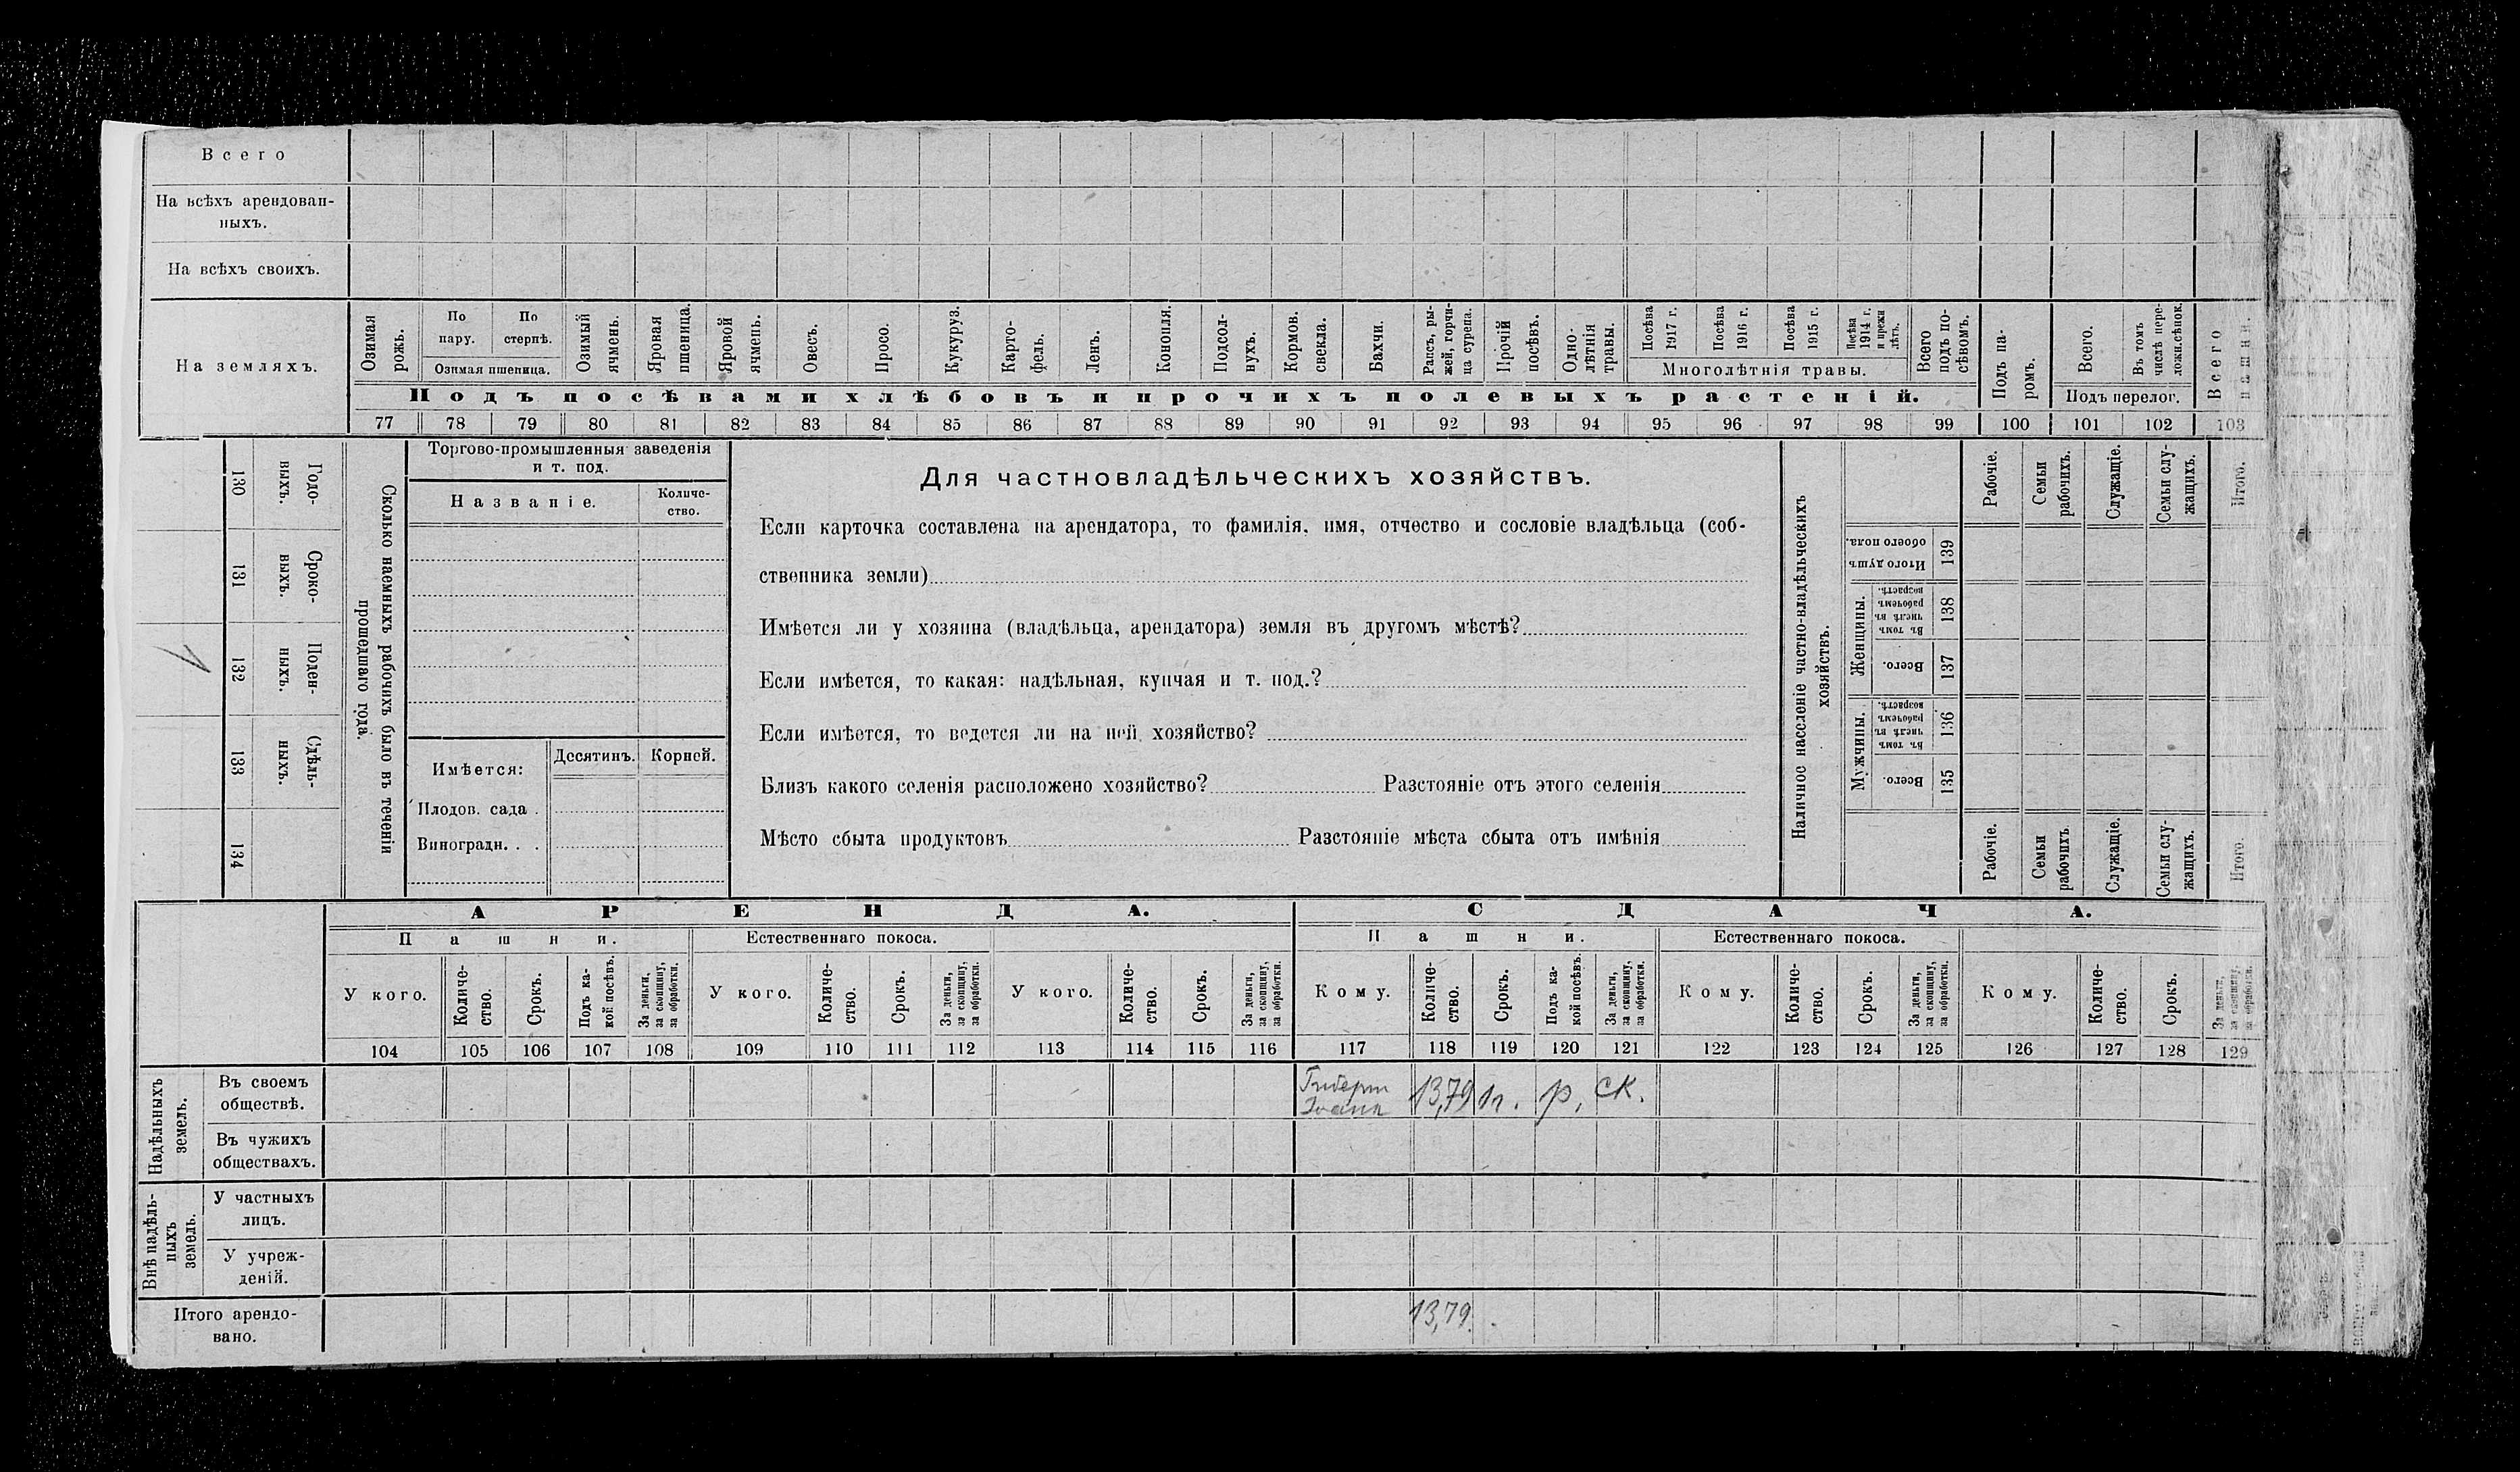 Всего
На всѣхъ арендован-
ныхъ.
На всѣхъ своихъ.
На земляхъ.
Озимая рожь.
По пару.
По стернѣ.
Озимая пшеница.
Озимый ячмень.
Яровая пшеница.
Яровой ячмень.
Овесъ.
Просо.
Кукуруз.
Карто-
фель.
Ленъ.
Конопля.
Подсол-
нухъ.
Кормов.
свекла.
Бахчи.
Рапсъ, ры-
жей, горчи-
ца сурепа.
Прочій
посѣвъ.
Одно-
лѣтнія
травы.
Посѣва
1917 г.
Посѣва
1916 г.
Посѣва
1915 г.
Посѣва
1914 г.
и прежн
лѣтъ.
Многолѣтнія травы.
Всего
подъ по-
сѣвомъ.
Подъ па-
ромъ.
Всего.
Въ томъ
числѣ пере-
ложн.сѣнок.
Подъ перелог.
Всего
пашни.
Подъ посѣвами хлѣбовъ и прочихъ полевыхъ растеній.
77 78 79 80 81 82 83 84 85 86 87 88 89 90 91 92 93 94 95 96 97 98 99 100 101 102 103
Годо-
выхъ.
130
Сроко-
выхъ.
131
Поден-
ныхъ.
132
Сдѣль-
ныхъ.
133
134
Сколько наемныхъ рабочихъ было въ теченіи
прошедшаго года.
Торгово-промышленныя заведенія
и т. под.
Названіе.
Количе-
ство.
Имѣется:
Десятинъ.
Корней.
Плодов. сада .
Виноградн. . .
Для частновладѣльческихъ хозяйствъ.
Если карточка составлена на арендатора, то фамилія, имя, отчество и сословіе владѣльца (соб-
ственника земли)
Имѣется ли у хозяина (владѣльца, арендатора) земля въ другомъ мѣстѣ?
Если имѣется, то какая: надѣльная, купчая и т. под.?
Если имѣется, то ведется ли на ней хозяйство?
Близъ какого селенія расположено хозяйство? Разстояніе отъ этого селенія
Мѣсто сбыта продуктовъ Разстояніе мѣста сбыта отъ имѣнія
Наличное населеніе частно-владѣльческихъ
хозяйствъ.
Рабочіе.
Семьи
рабочихъ.
Служащіе.
Семьи слу-
жащихъ.
Итого.
Итого душъ
обоего пола.
139
Женщины.
Въ томъ
числѣ въ
рабочемъ
возрастѣ.
138
Всего.
137
Мужчины.
Въ томъ
числѣ въ
рабочемъ
возрастѣ.
136
Всего.
135
Рабочіе.
Семьи
рабочихъ.
Служащіе.
Семьи слу-
жащихъ.
Итого.
АРЕНДА.
СДАЧА.
Пашни.
Естественнаго покоса.
Пашни.
Естественнаго покоса.
У кого.
Количе-
ство.
Срокъ.
Подъ ка-
кой посѣвъ.
За деньги,
за скопщину,
за обработки.
У кого.
Количе-
ство.
Срокъ.
За деньги,
за скопщину,
за обработки.
У кого.
Количе-
ство.
Срокъ.
За деньги,
за скопщину,
за обработки.
Кому.
Количе-
ство.
Срокъ.
Подъ ка-
кой посѣвъ.
За деньги,
за скопщину,
за обработки.
Кому.
Количе-
ство.
Срокъ.
За деньги,
за скопщину,
за обработки.
Кому.
Количе-
ство.
Срокъ.
За деньги,
за скопщину,
за обработки.
104 105 106 107 108 109 110 111 112 113 114 115 116 117 118 119 120 121 122 123 124 125 126 127 128 129
Надѣльныхъ
земель.
Въ своемъ
обществѣ.
13,79 1 г. р. ск.
Въ чужихъ
обществахъ.
Внѣ надѣль-
ныхъ
земель.
У частныхъ
лицъ.
У учреж-
деній.
Итого арендо-
вано.
13,79.